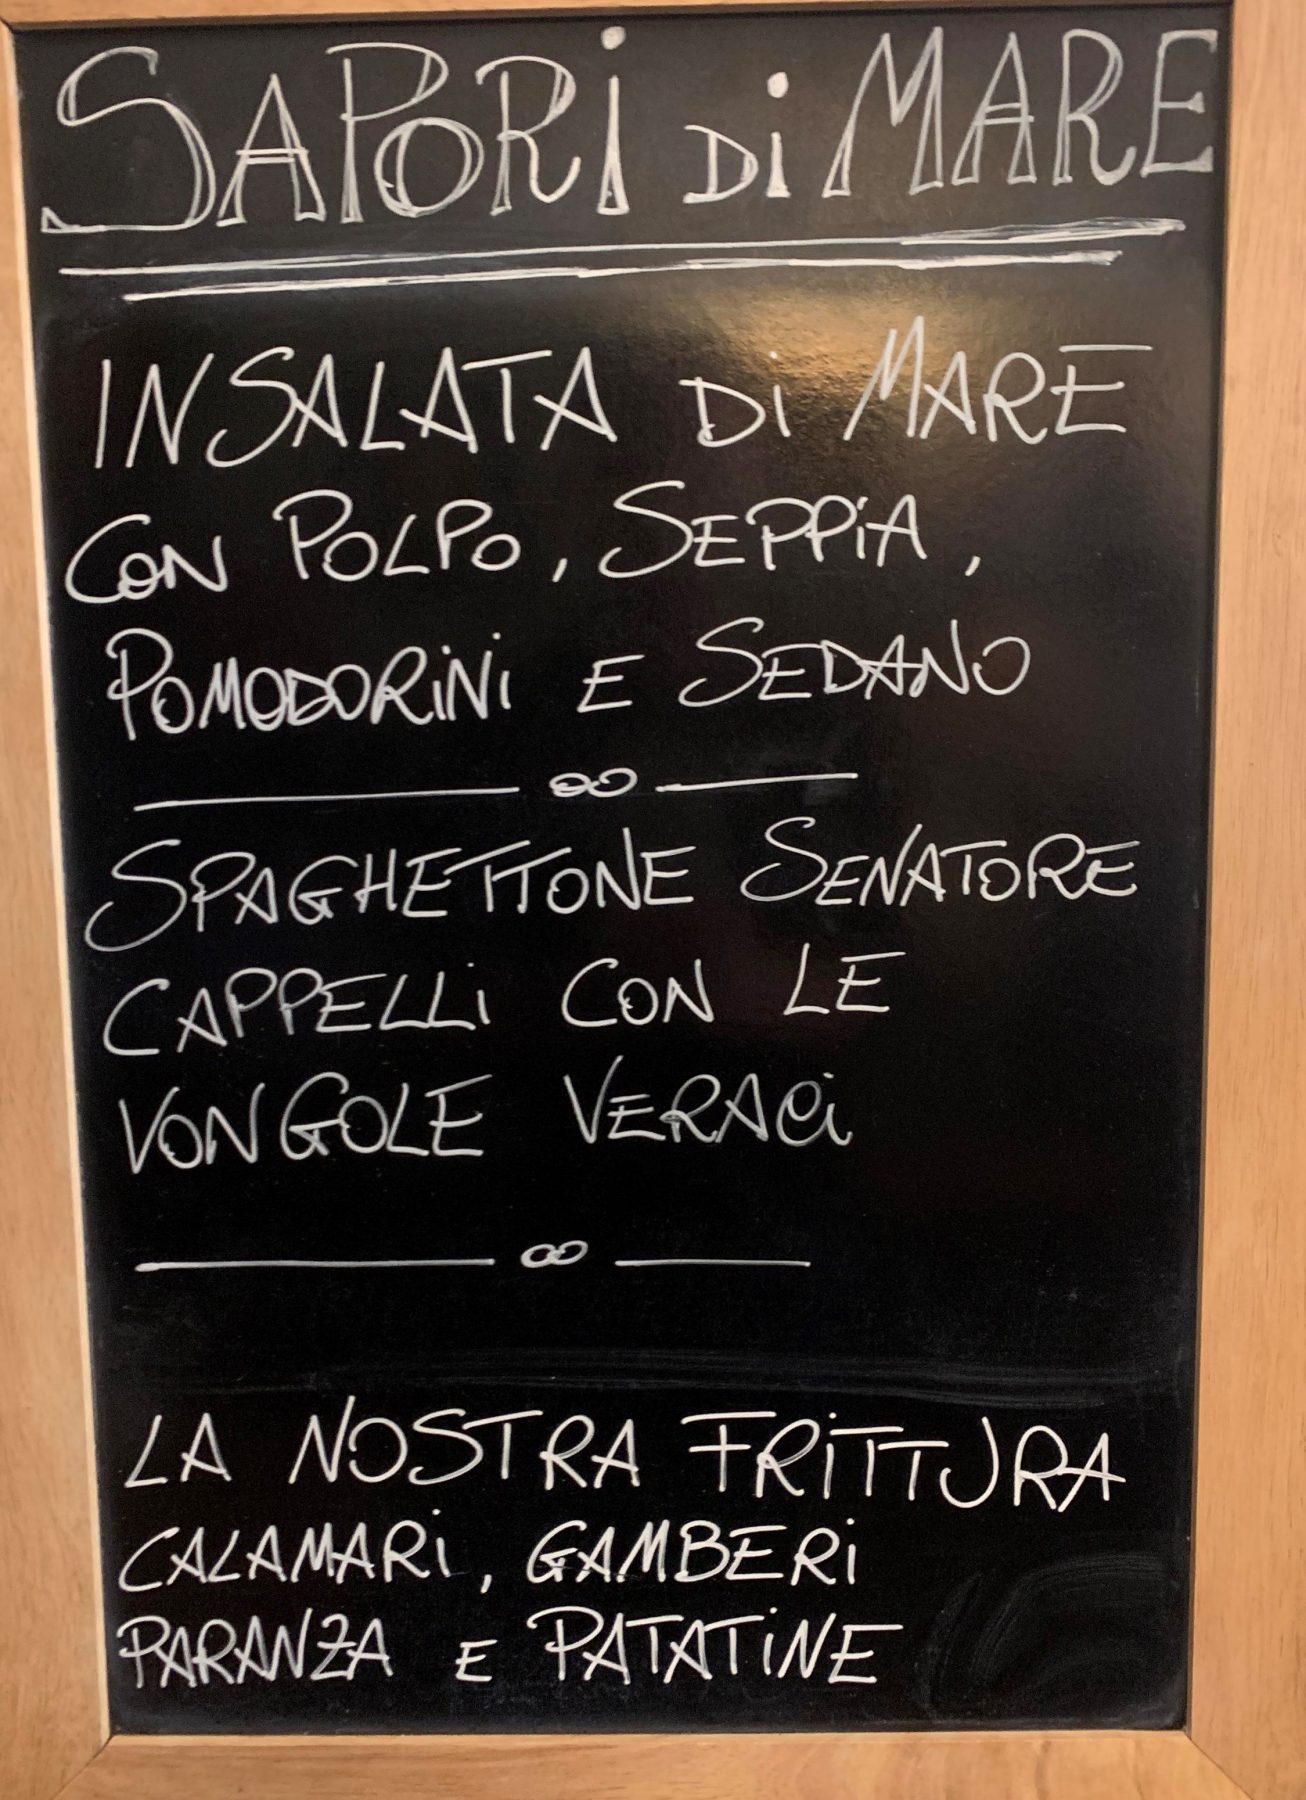 SAPORi Di MARE
INSALATA Di MARE
CON POLPO, SEPPiA,
POMODORiNi E SEDANO
SPAGHETTONE SENATORE
CAPPELLi CON LE
VONGOLE VERACi
LA NOSTRA FRiTTURA
CALAMARi, GAMBERi
PARANZA E PATATiNE